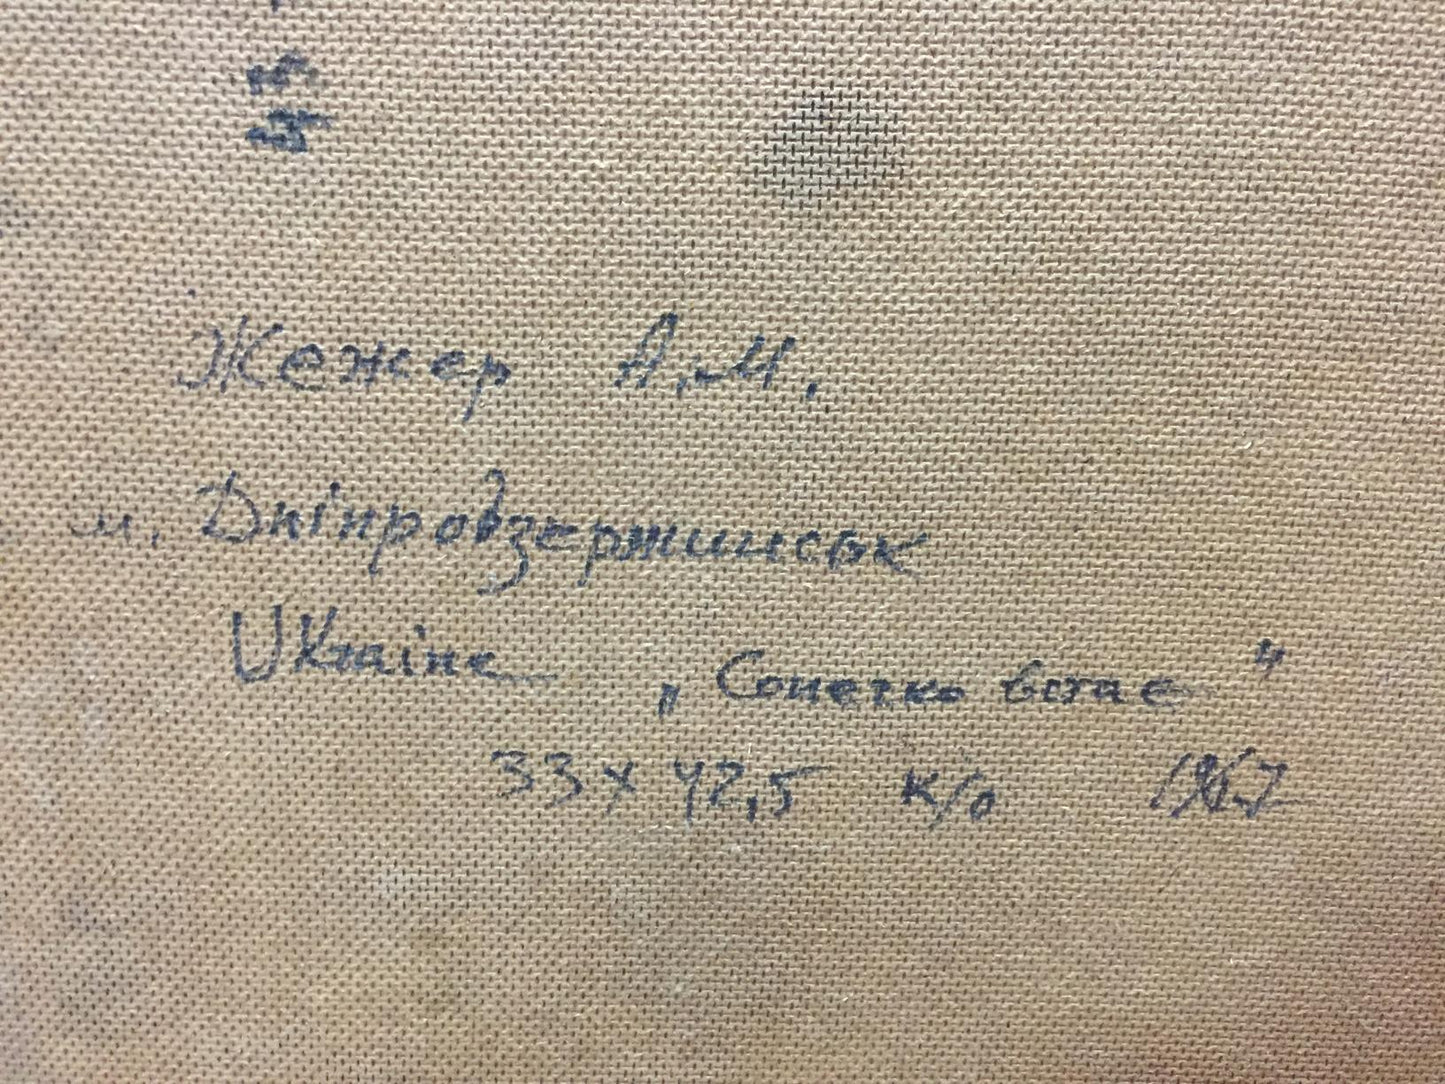 45
Жежер А.М.
м. Дніпродзержинськ
Ukraine „Сонечко встає"
33x42,5 к/о 1967